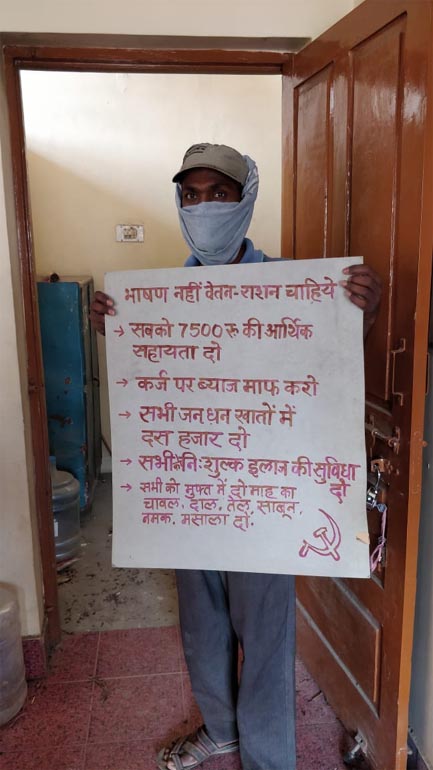 भाषण नहीं वेतन-राशन चाहिये
→ सबको 7500 रु की आर्थिक
सहायता दो
→ कर्ज पर ब्याज माफ करो
→ सभी जन धन खातों में
दस हजार दो
→ सभी को नि:शुल्क इलाज की सुविधा
दो
→ सभी को मुफ्त में दो माह का
चावल, दाल, तेल, साबुन,
नमक, मसाला दो.